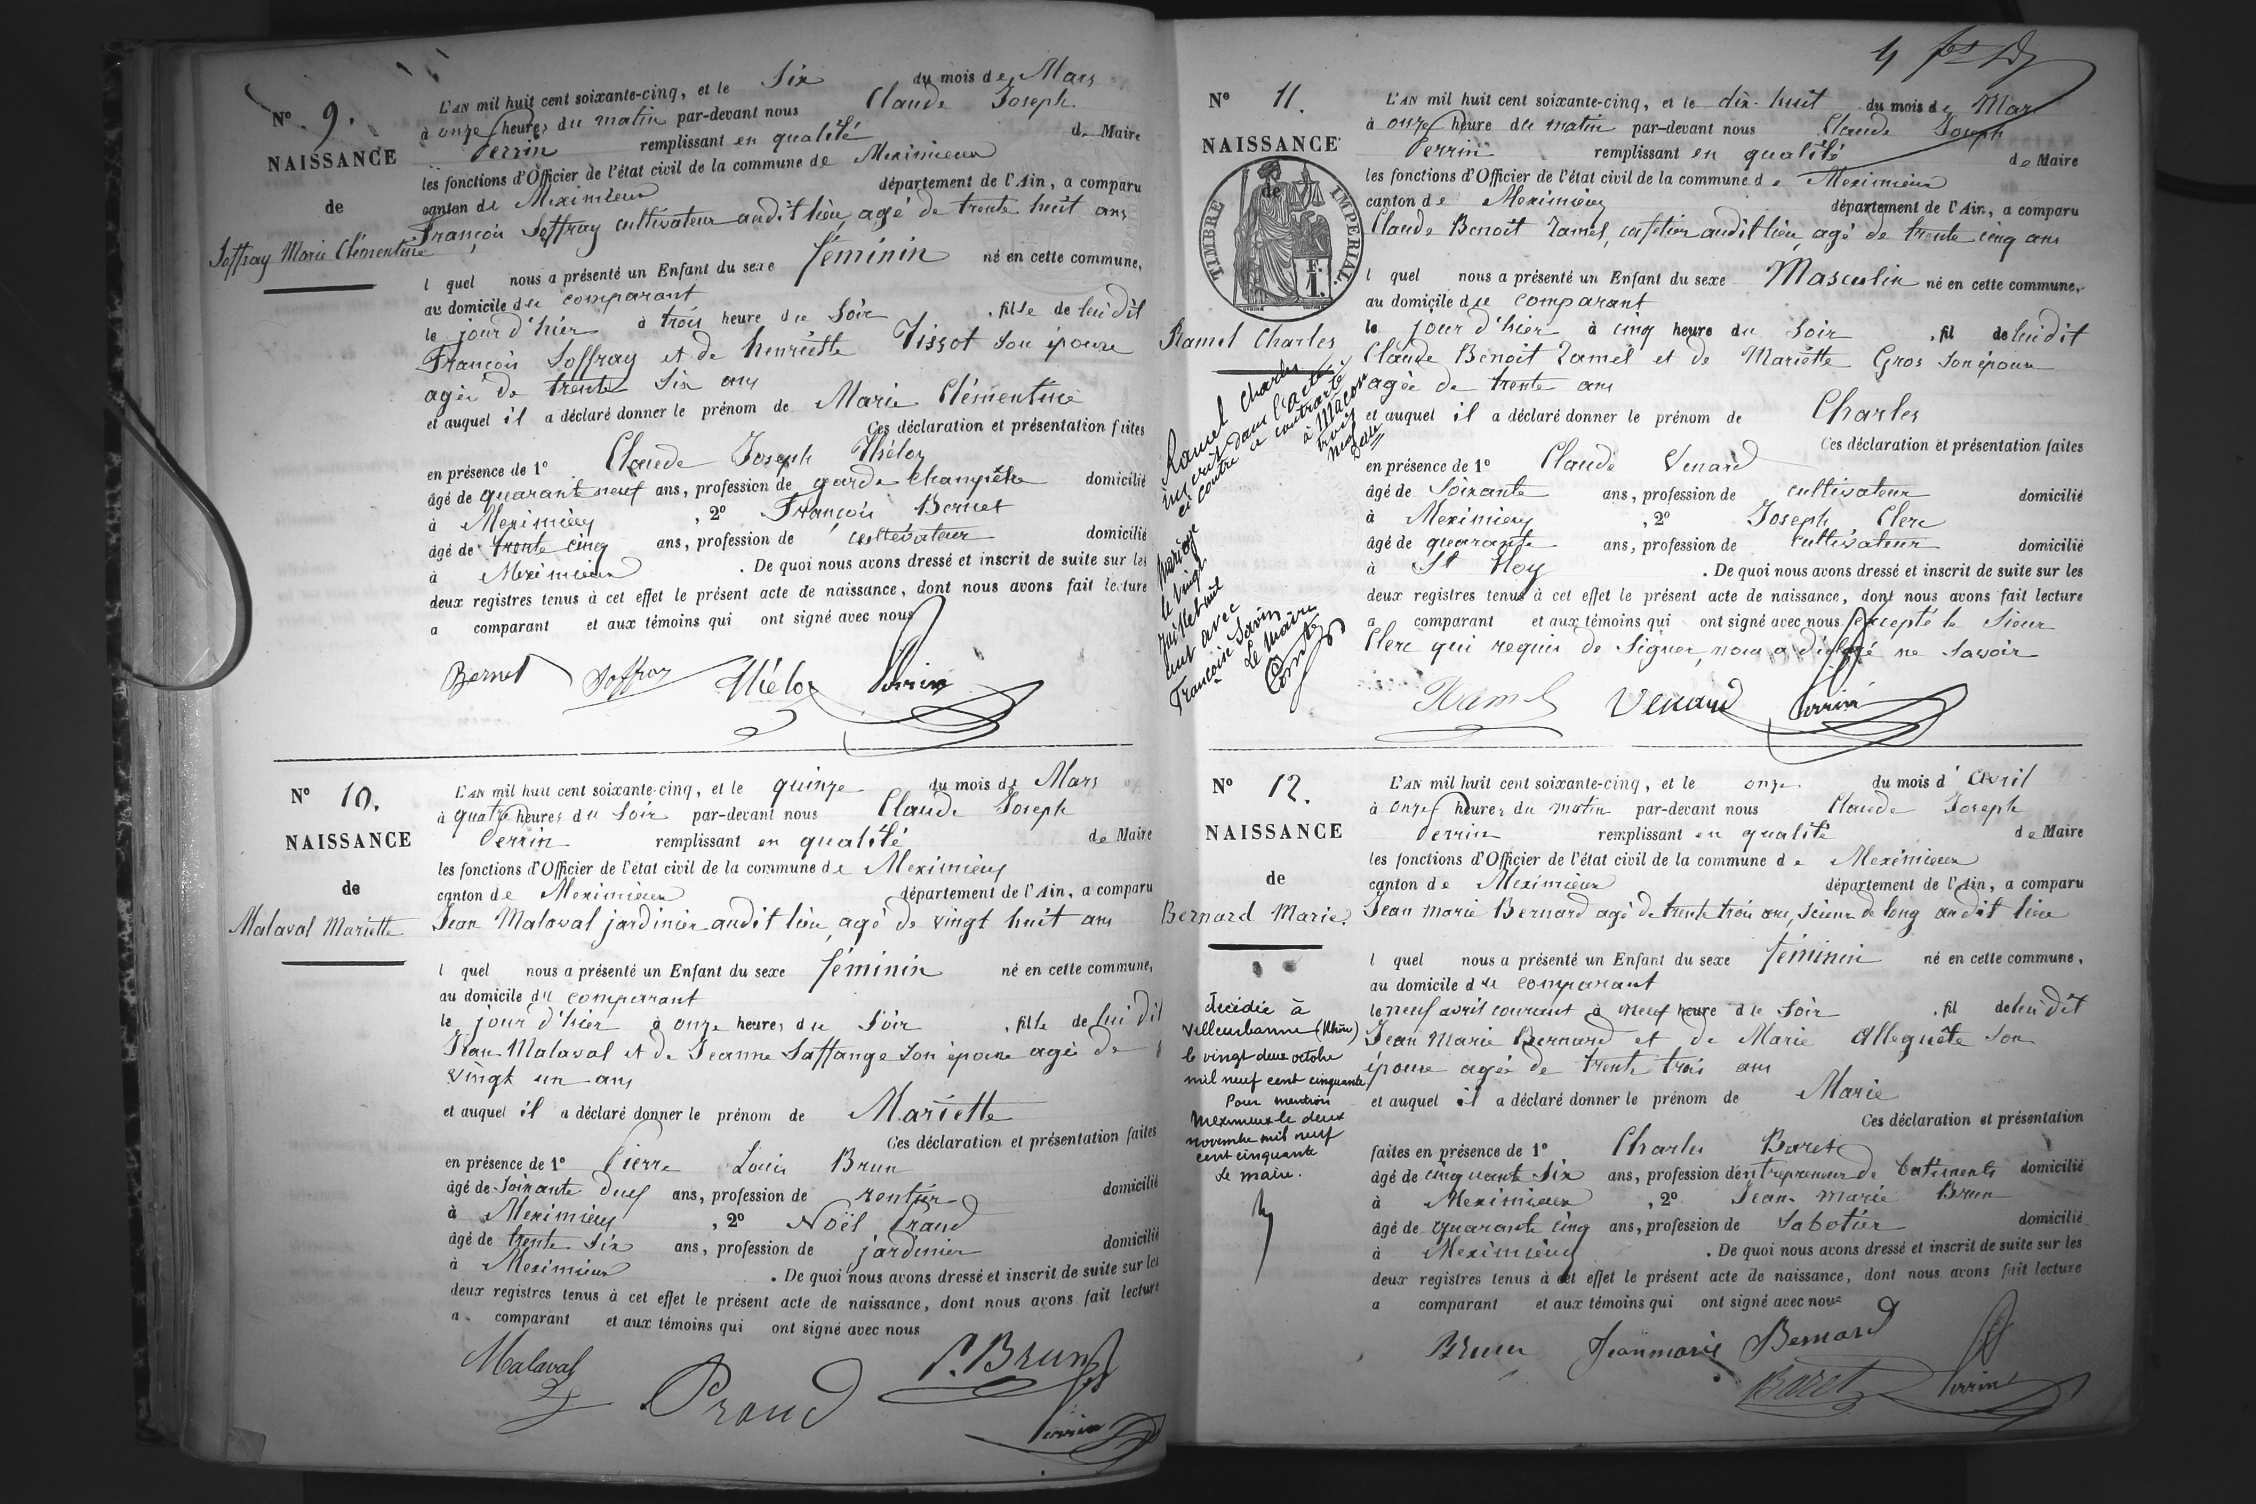 Nº 9.
NAISSANCE
de
Soffray Marie Clémentine
L'AN mil huit cent soixante-cinq, et le Six du mois de Mars
à onze heures du matin par-devant nous Claude Joseph
Perrin remplissant en qualité de Maire
les fonctions d'Officier de l'état civil de la commune de Meximieux
canton de Meximieux département de l'Ain, a comparu
François Soffray cultivateur audit lieu, agé de trente huit ans
l quel nous a présenté un Enfant du sexe féminin né en cette commune,
au domicile du comparant
le jour d'hier à trois heure du Soir, fille de lui dit
François Soffray et de henriette Tissot son épouse
agée de trente Six ans
et auquel il a déclaré donner le prénom de Marie Clémentine
Ces déclaration et présentation faites
en présence de 1º Claude Joseph Théloz
âgé de quarant neuf ans, profession de garde Champêtre domicilié
à Meximieux, 2º François Bernet
âgé de trente cinq ans, profession de cultivateur domicilié
à Meximieux. De quoi nous avons dressé et inscrit de suite sur les
deux registres tenus à cet effet le présent acte de naissance, dont nous avons fait lecture
a comparant et aux témoins qui ont signé avec nous
Bernet Soffray Théloz Perrin
Nº 10.
NAISSANCE
de
Malaval Mariette
L'AN mil huit cent soixante-cinq, et le quinze du mois de Mars
à quatre heures du Soir par-devant nous Claude Joseph
Perrin remplissant en qualité de Maire
les fonctions d'Officier de l'état civil de la commune de Meximieux
canton de Meximieux département de l'Ain, a comparu
Jean Malaval jardinier audit lieu, agé de vingt huit ans
l quel nous a présenté un Enfant du sexe féminin né en cette commune,
au domicile du comparant
le jour d'hier à onze heures du Soir, fille de lui dit
Jean Malaval et de Jeanne Laffange son épouse agée de
vingt un ans
et auquel il a déclaré donner le prénom de Mariette
Ces déclaration et présentation faites
en présence de 1º Pierre Louis Brun
âgé de Soixante Deux ans, profession de rentier domicilié
à Meximieux, 2º Noël Praud
âgé de trente Six ans, profession de jardinier domicilié
à Meximieux. De quoi nous avons dressé et inscrit de suite sur les
deux registres tenus à cet effet le présent acte de naissance, dont nous avons fait lecture
a comparant et aux témoins qui ont signé avec nous
Malaval Praud P. Brun
Perrin
4
Nº 11.
NAISSANCE
de
TIMBRE IMPERIAL.
F.
1.
Ramel Charles
Ramel Charles
inscrit dans l'acte
ci contre a contracté
à Macon
mariage
le vingt trois
juillet mil neuf
cent avec
Françoise Savin
Le Maire
L'AN mil huit cent soixante-cinq, et le dix-huit du mois de Mars
à onze heure du matin par-devant nous Claude Joseph
Perrin remplissant en qualité de Maire
les fonctions d'Officier de l'état civil de la commune de Meximieux
canton de Meximieux département de l'Ain, a comparu
Claude Benoît Ramel, cafetier audit lieu, agé de trente cinq ans
l quel nous a présenté un Enfant du sexe Masculin né en cette commune,
au domicile du comparant
le jour d'hier à cinq heure du soir, fil de lui dit
Claude Benoît Ramel et de Mariette Gros son épouse
agée de trente ans
et auquel il a déclaré donner le prénom de Charles
Ces déclaration et présentation faites
en présence de 1º Claude Venard
âgé de Soixante ans, profession de cultivateur domicilié
à Meximieux, 2º Joseph Clerc
âgé de quarante ans, profession de cultivateur domicilié
à St Eloy. De quoi nous avons dressé et inscrit de suite sur les
deux registres tenus à cet effet le présent acte de naissance, dont nous avons fait lecture
a comparant et aux témoins qui ont signé avec nous excepté le Sieur
Clerc qui requis de Signer, nous a déclaré ne Savoir
Ramel Venard Perrin
Nº 12.
NAISSANCE
de
Bernard Marie
Décédée à
Villeurbanne (Rhône)
le vingt deux octobre
mil neuf cent cinquante
Pour mention
Meximieux le deux
novembre mil neuf
cent cinquante
Le maire.
L'AN mil huit cent soixante-cinq, et le onze du mois d'Avril
à onze heures du matin par-devant nous Claude Joseph
Perrin remplissant en qualité de Maire
les fonctions d'Officier de l'état civil de la commune de Meximieux
canton de Meximieux département de l'Ain, a comparu
Jean Marie Bernard agé de trente trois ans, scieur de long audit lieu
l quel nous a présenté un Enfant du sexe féminin né en cette commune,
au domicile du comparant
le neuf avril courant à neuf heure du Soir, fil de lui dit
Jean Marie Bernard et de Marie Alleguête son
épouse agée de trente trois ans
et auquel il a déclaré donner le prénom de Marie
Ces déclaration et présentation
faites en présence de 1º Charles Baret
âgé de cinquante Six ans, profession d'entrepreneur de batiments domicilié
à Meximieux, 2º Jean-Marie Brun
âgé de Quarante cinq ans, profession de Sabotier domicilié
à Meximieux. De quoi nous avons dressé et inscrit de suite sur les
deux registres tenus à cet effet le présent acte de naissance, dont nous avons fait lecture
a comparant et aux témoins qui ont signé avec nous
Brun Jeanmarie Bernard
Baret Perrin